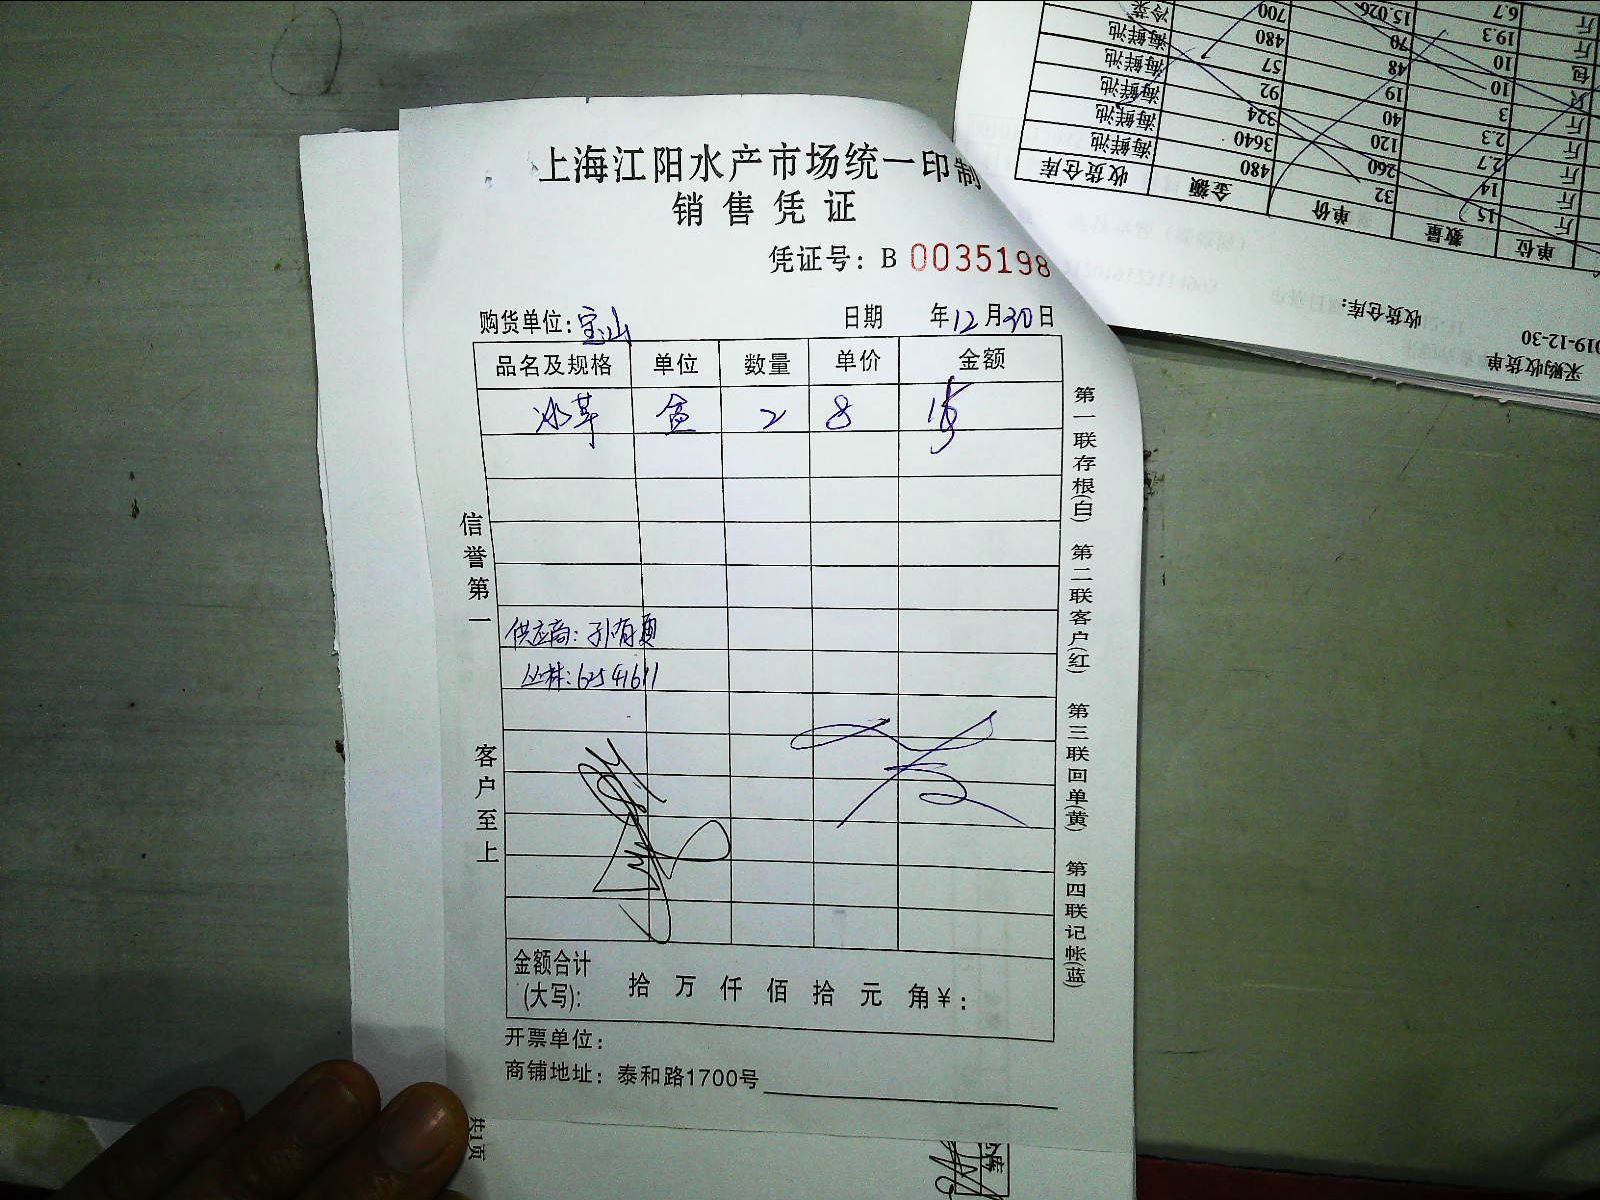 上海江阳水产市场统一印制
销售凭证
凭证号：B 0035198
购货单位：宝山 日期 年12月30日
品名及规格 单位 数量 单价 金额
冰草 盒 2 8
供应商：孙有夏
丛林：62541611
信誉第一
客户至上
第一联存根(白) 第二联客户(红) 第三联回单(黄) 第四联记帐(蓝)
金额合计
(大写)： 拾 万 仟 佰 拾 元 角 ¥：
开票单位：
商铺地址：泰和路1700号
共1页
采购收货单
019-12-30
收货仓库：
单位 数量 单价 金额 收货仓库
斤 15 32 480 海鲜池
斤 14 260 3640 海鲜池
斤 2.7 120 324 海鲜池
斤 2.3 40 92 海鲜池
斤 3 19 57 海鲜池
只 10 48 480 海鲜池
包 10 70 700 冷菜
斤 19.3
斤 6.7 15.026